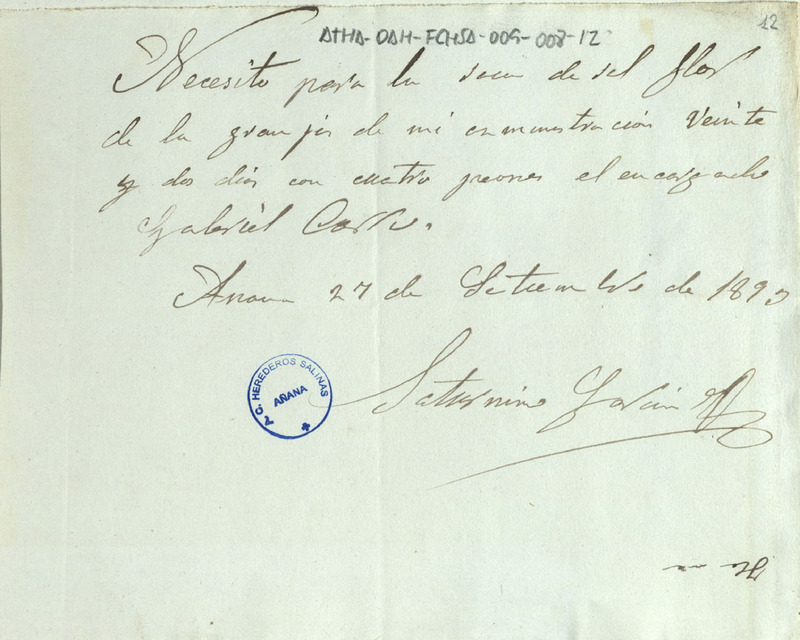 12
ATHA-DAH-FCHSA-009-008-12
Necesito para la saca de sal flor
de la granja de mi enmenistracion Veinte
y dos dias con cuatro peones el encargado
Gabriel
Anana 27 de Setiembre de 1893
Saturnino
P. C. HEREDEROS SALINAS
AÑANA